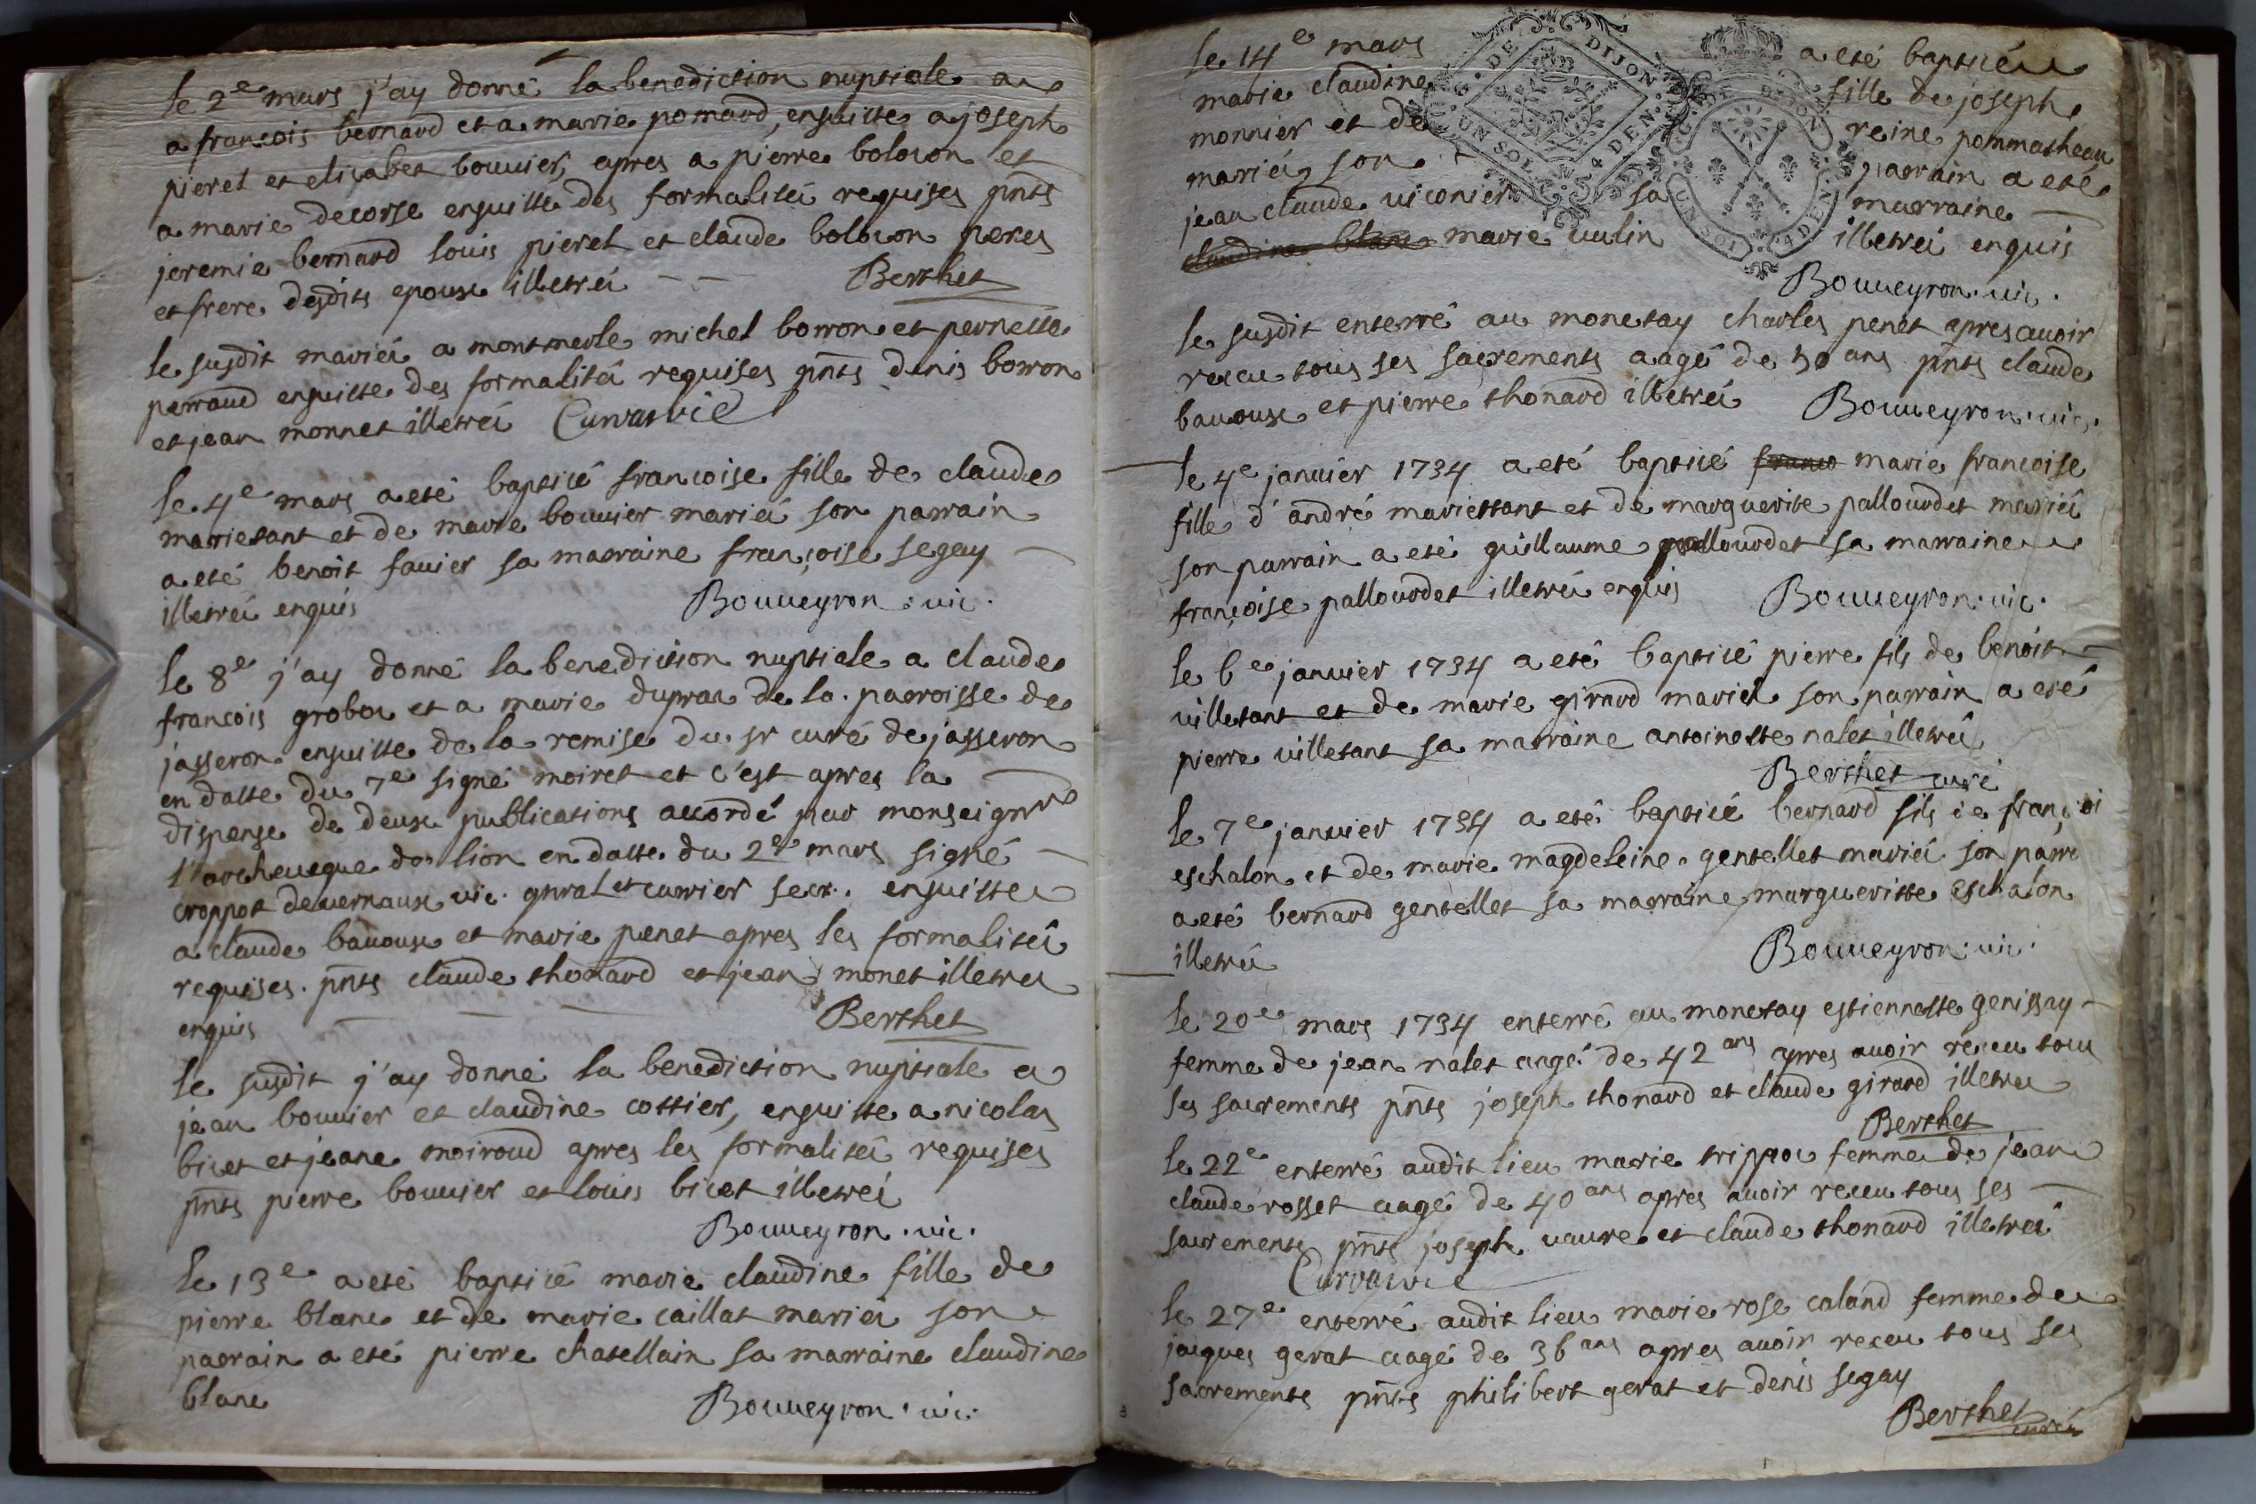 le 2e mars j'ay donné la benediction nuptiale a
a francois bernard et a marie pomard, ensuitte a joseph
pieret et elizabet bouvier, apres a pierre bolozon et
a marie decorse ensuitte des formalités requises pnts
jeremie bernard louis pieret et claude bolozon peres
et frere desdits epoux illetrés
Berthet
le susdit mariés a montmerle michel borron et pernette
perraud ensuitte des formalités requises pnts denis borron
et jean monnet illetrés
le 4e mars a eté baptisé francoise fille de claude
marietant et de marie bouvier mariés son parrain
a eté benoit favier sa marraine françoise segay
illetrés enquis
Bouveyron . vic.
le 8e j'ay donné la benediction nuptiale a claude
francois groboz et a marie dupraz de la parroisse de
jasseron ensuitte de la remise du sr curé de jasseron
en datte du 7e signé moiret et c'est apres la
dispense de deux publications accordé par monseignr
l'archeveque de lion en datte du 2e mars signé
croppet devernaux vic. gnral et cuvier secr. ensuitte
a claude bavoux et marie penet apres les formalités
requises. pnts claude thonard et jean monet illetres
enquis
Berthet
le susdit j'ay donné la benediction nuptiale a
jean bouvier et claudine cottier, ensuitte a nicolas
bicet et jeane moiroud apres les formalités requises
pnts pierre bouvier et louis bicet illetrés
Bouveyron . vic.
le 13e a eté baptisé marie claudine fille de
pierre blanc et de marie caillat mariés son
parrain a eté pierre chatellain sa marraine claudine
blanc
Bouveyron . vic.
le 14e mars a eté baptisée
marie claudine fille de joseph
monnier et de reine pommatheau
mariés, son parrain a eté
jean claude viconier sa marraine
claudine blanc marie vulin illetrés enquis
Bouveyron . vic.
G. DE DIJON
UN SOL 4 DEN
G. DE DIJON
UN SOL 4 DEN
le susdit enterré au monetay charles penet apres avoir
receu tous ses sacrements aagé de 50 ans pnts claude
bavoux et pierre thonard illetrés
Bouveyron . vic.
le 4e janvier 1734 a eté baptisé franco marie francoise
fille d'andré mariettant et de marguerite pallourdet mariés
son parrain a eté guillaume pallourdet sa marraine
françoise pallourdet illetrés enquis
Bouveyron . vic.
le 6e janvier 1734 a eté baptisé pierre fils de benoit
villetant et de marie girard mariés son parrain a eté
pierre villetant sa marraine antoinette nalet illetrés
Berthet curé
le 7e janvier 1734 a eté baptisé bernard fils de françoi
eschalon et de marie magdeleine gentellet mariés son parr
a eté bernard gentellet sa marraine margueritte eschalon
illetrés
Bouveyron . vic.
le 20e mars 1734 enterré au monetay estiennette genissay
femme de jean nalet aagé de 42 ans apres avoir receu tous
ses sacrements pnts joseph thonard et claude girard illetres
Berthet
le 22e enterré audit lieu marie trippoz femme de jean
claude rosset aagé de 40 ans apres avoir receu tous ses
sacrements pnts joseph vavre et claude thonard illetrés
le 27e enterré audit lieu marie rose caland femme de
jacques gerat aagé de 36 ans apres avoir receu tous ses
sacrements pnts philibert gerat et denis segay
Berthet curé